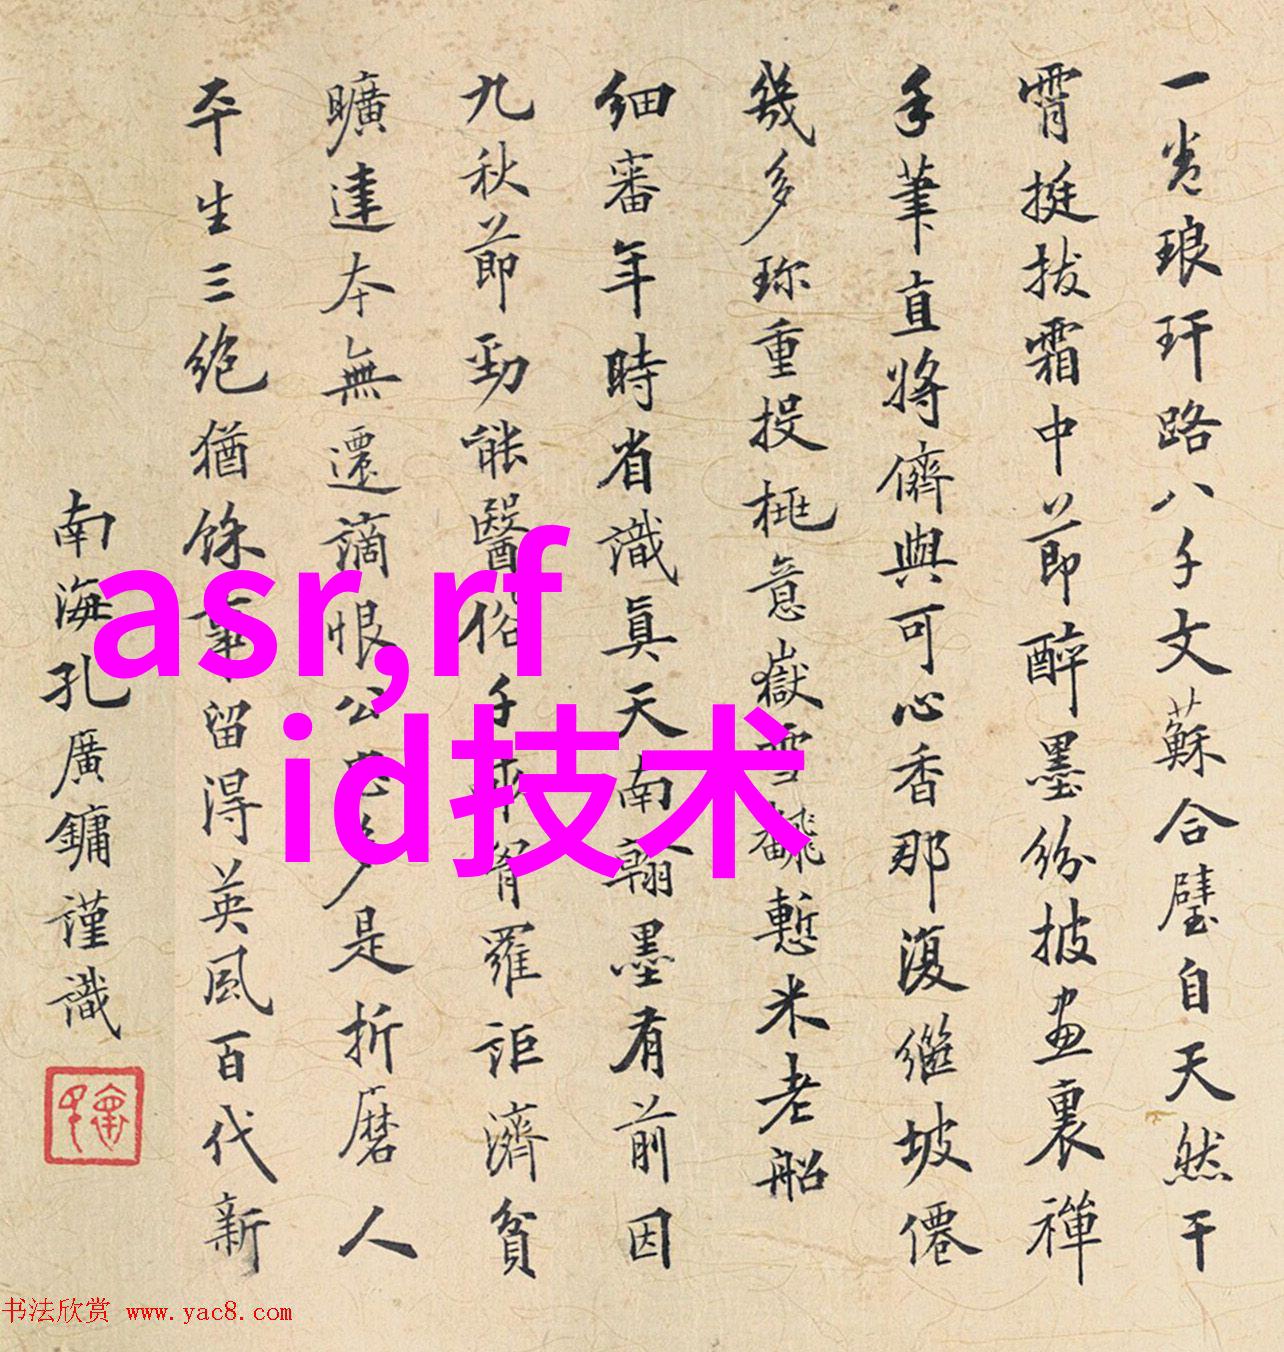 一卷琅玕路八千文蘇合璧自天然干
霄挺拔霜中節醉墨紛披畫裏禪
手筆直將儕與可心香那復繼坡僊
幾多珎重投桃意嶽雪飜慙米老船
細審年時省識真天南翰墨有前因
九秋節勁能醫俗千畝胷羅詎濟貧
曠達本無遷謫恨公忠多是折磨人
平生三絶猶餘事留得英風百代新
南海孔廣鏞謹識
asr,rf
id技术
书法欣赏 www.yac8.com